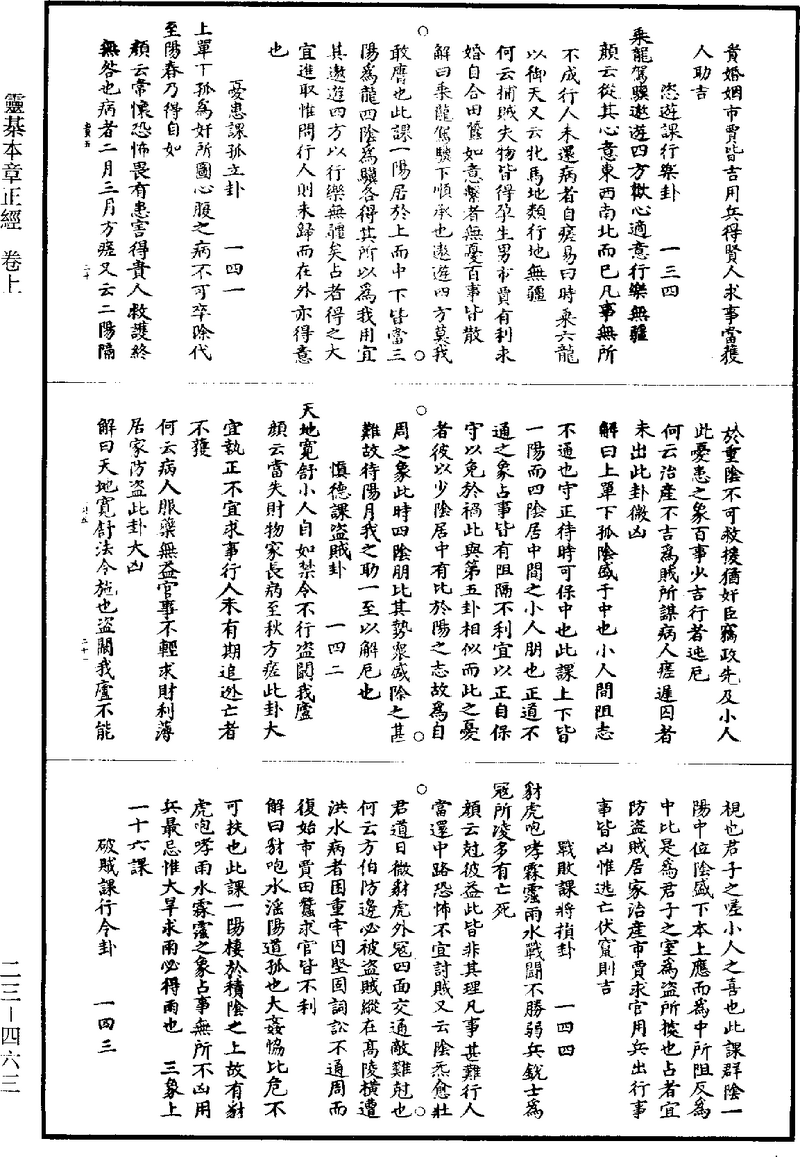 靈棊本章正經　卷上
二三—四六三
貴婚姻市賈皆吉用兵得賢人求事當獲
人助吉
恣遊課行樂卦　一三四
乘龍駕驥遨遊四方歡心適意行樂無疆
顏云從其心意東西南北而已凡事無所
不成行人未還病者自瘥易曰時乘六龍
以御天又云牝馬地類行地無疆
何云捕賊失物皆得孕生男市賈有利求
婚自合田蠶如意繫者無憂百事皆散
解曰乘龍駕驥下順承也遨遊四方莫我
敢膺也此課一陽居於上而中下皆當三
陽為龍四陰為驥各得其所以為我用宜
其遨遊四方以行樂無疆矣占者得之大
宜進取惟問行人則未歸而在外亦得意
也
憂患課孤立卦　一四一
上單下孤為奸所圖心腹之病不可卒除代
至陽春乃得自如
顏云常懷恐怖畏有患害得貴人救護終
無咎也病者二月三月方瘥又云二陽隔
於重陰不可救援猶奸臣竊政先及小人
此憂患之象百事少吉行者迍厄
何云治產不吉為賊所謀病人瘥遲囚者
未出此卦微凶
解曰上單下孤陰盛于中也小人間阻志
不通也守正待時可保中也此課上下皆
一陽而四陰居中間之小人朋也正道不
通之象占事皆有阻隔不利宜以正自保
守以免於禍此與第五卦相似而此之憂
者彼以少陰居中有比於陽之志故為自
周之象此時四陰朋比其勢眾盛除之甚
難故待陽月我之助一至以解厄也
慎德課盜賊卦　一四二
天地寬舒小人自如禁令不行盜闞我廬
顏云當失財物家長病至秋方瘥此卦大
宜執正不宜求事行人未有期追逃亡者
不獲
何云病人服藥無益官事不輕求財利薄
居家防盜此卦大凶
解曰天地寬舒法令施也盜闞我廬不能
視也君子之嗟小人之喜也此課群陰一
陽中位陰盛下本上應而為中所阻反為
中比是為君子之室為盜所據也占者宜
防盜賊居家治產市賈求官用兵出行事
事皆凶惟逃亡伏竄則吉
戰敗課將損卦　一四四
豺虎咆哮霖霪雨水戰鬪不勝弱兵銳士為
寇所凌多有亡死
顏云尅彼益此皆非其理凡事甚難行人
當還中路恐怖不宜討賊又云陰烝愈壯
君道日微豺虎外寇四面交通敵難尅也
何云方伯防邊必被盜賊縱在髙陵橫遭
洪水病者困重牢囚堅固詞訟不通周而
復始市賈田蠶求官皆不利
解曰豺咆水淫陽道孤也大姦恊比危不
可扶也此課一陽棲於積陰之上故有豺
虎咆哮雨水霖霪之象占事無所不凶用
兵最忌惟大旱求雨必得雨也　三象上
一十六課
破賊課行令卦　一四三